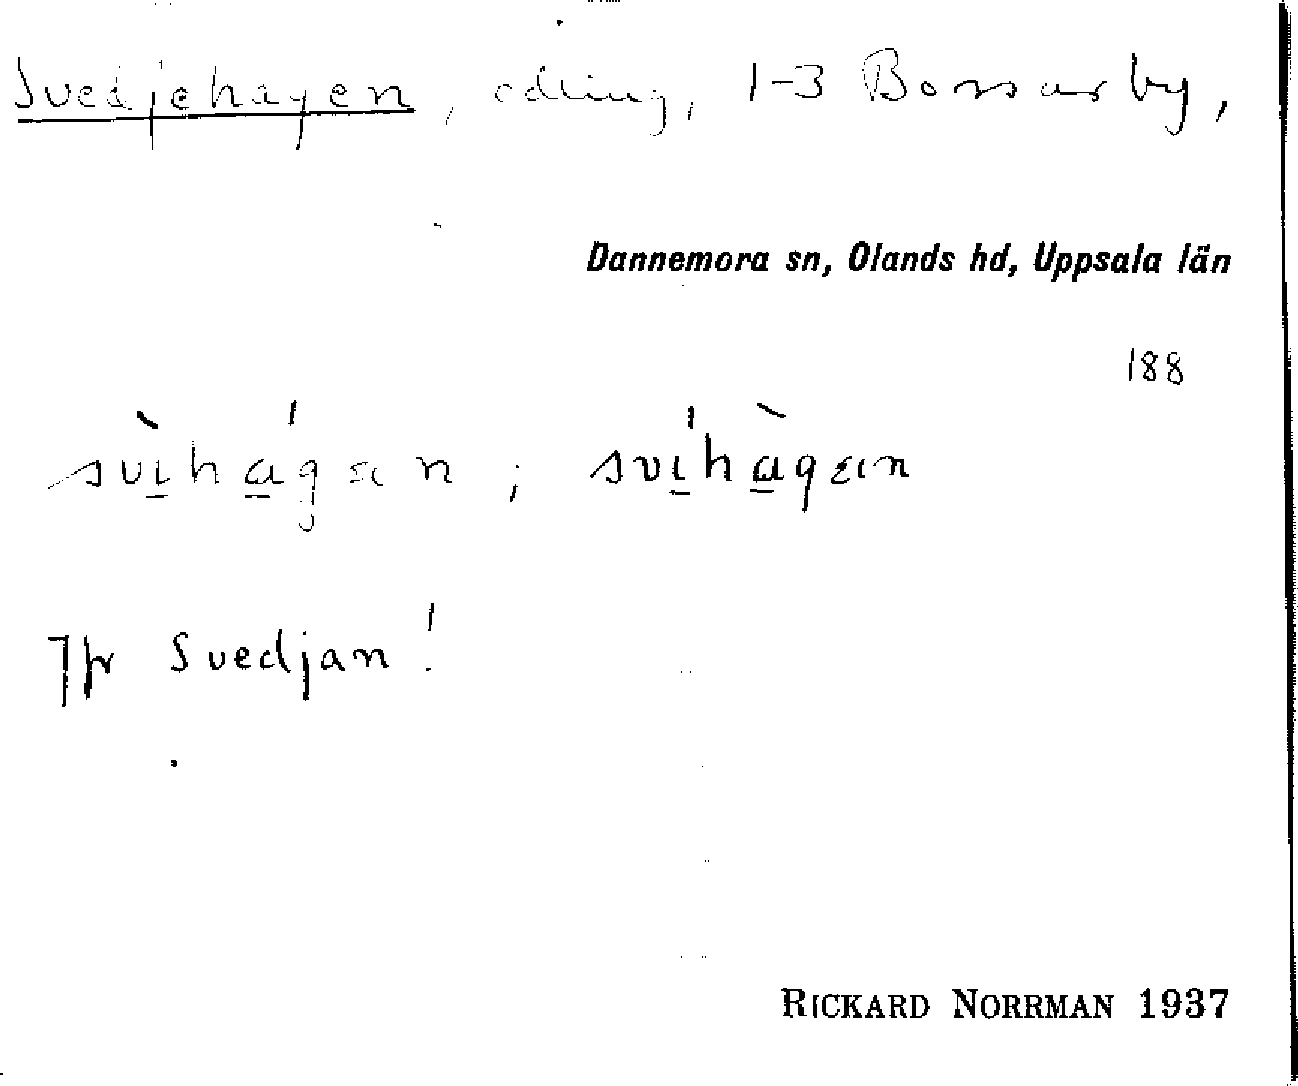 Svedjehagen, odling, 1-3 Bossarby,
Dannemora sn, Olands hd, Uppsala län
188
svìhágan ; svíhàgan
Jfr Svedjan!
RICKARD NORRMAN 1937